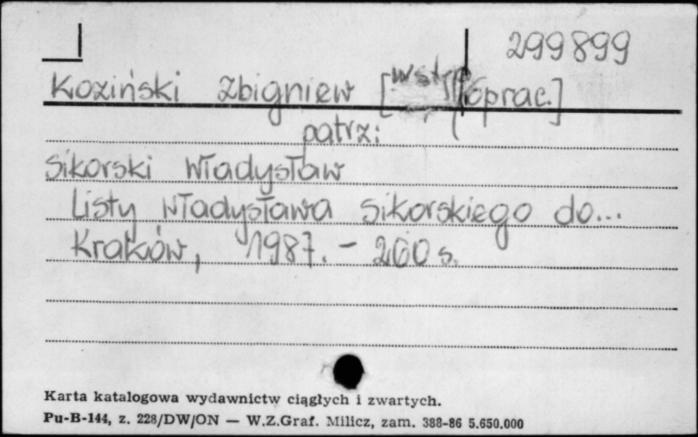 299899
Koziński Zbigniew [wstęp, oprac.]
patrz:
Sikorski Władysław
Listy Władysława Sikorskiego do...
Kraków, 1987. – 260 s.
Karta katalogowa wydawnictw ciągłych i zwartych.
Pu-B-144, z. 228/DW/ON — W.Z.Graf. Milicz, zam. 388-86 5.650.000